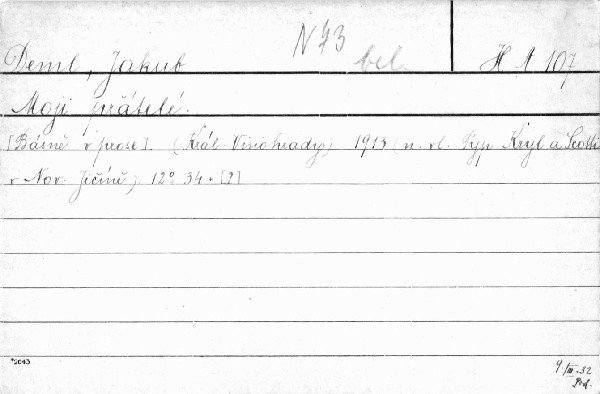 N 73
Deml, Jakub bel. H A 107
Moji přátelé.
[Básně v prose]. (Král. Vinohrady) 1913 (n. vl. Typ. Kryl a Scotti
v Nov. Jičíně). 12° 34 + [2]
*2043
9/III.32